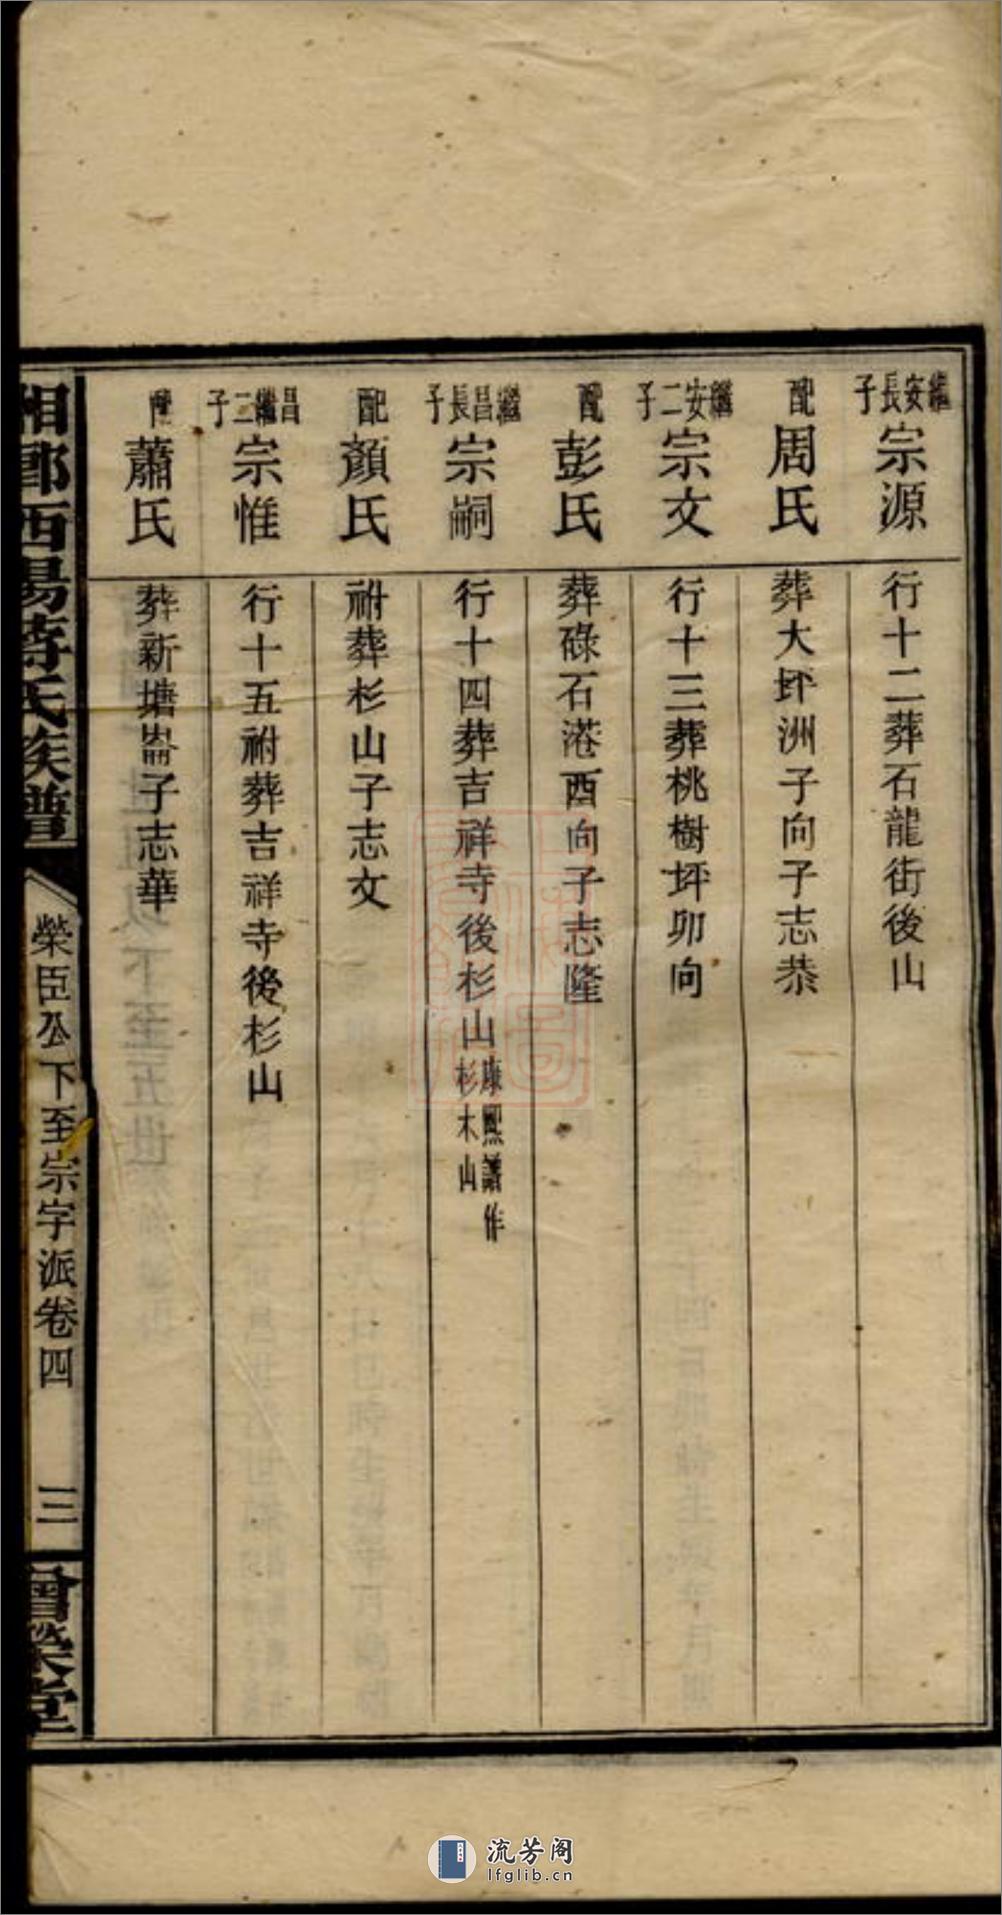 繼安長子
宗源
行十二葬石龍街後山
配
周氏
葬大坪洲子向子志恭
繼安二子
宗文
行十三葬桃樹坪卯向
配
彭氏
葬碌石港酉向子志隆
繼昌長子
宗嗣
行十四葬吉祥寺後杉山
康熙譜作
杉木山
配
顏氏
祔葬杉山子志文
繼昌二子
宗惟
行十五祔葬吉祥寺後杉山
配
蕭氏
葬新塘崙子志華
西陽蔣氏族譜
榮臣公下至宗字派卷四
三
榮堂
流芳阁
lfglib.cn